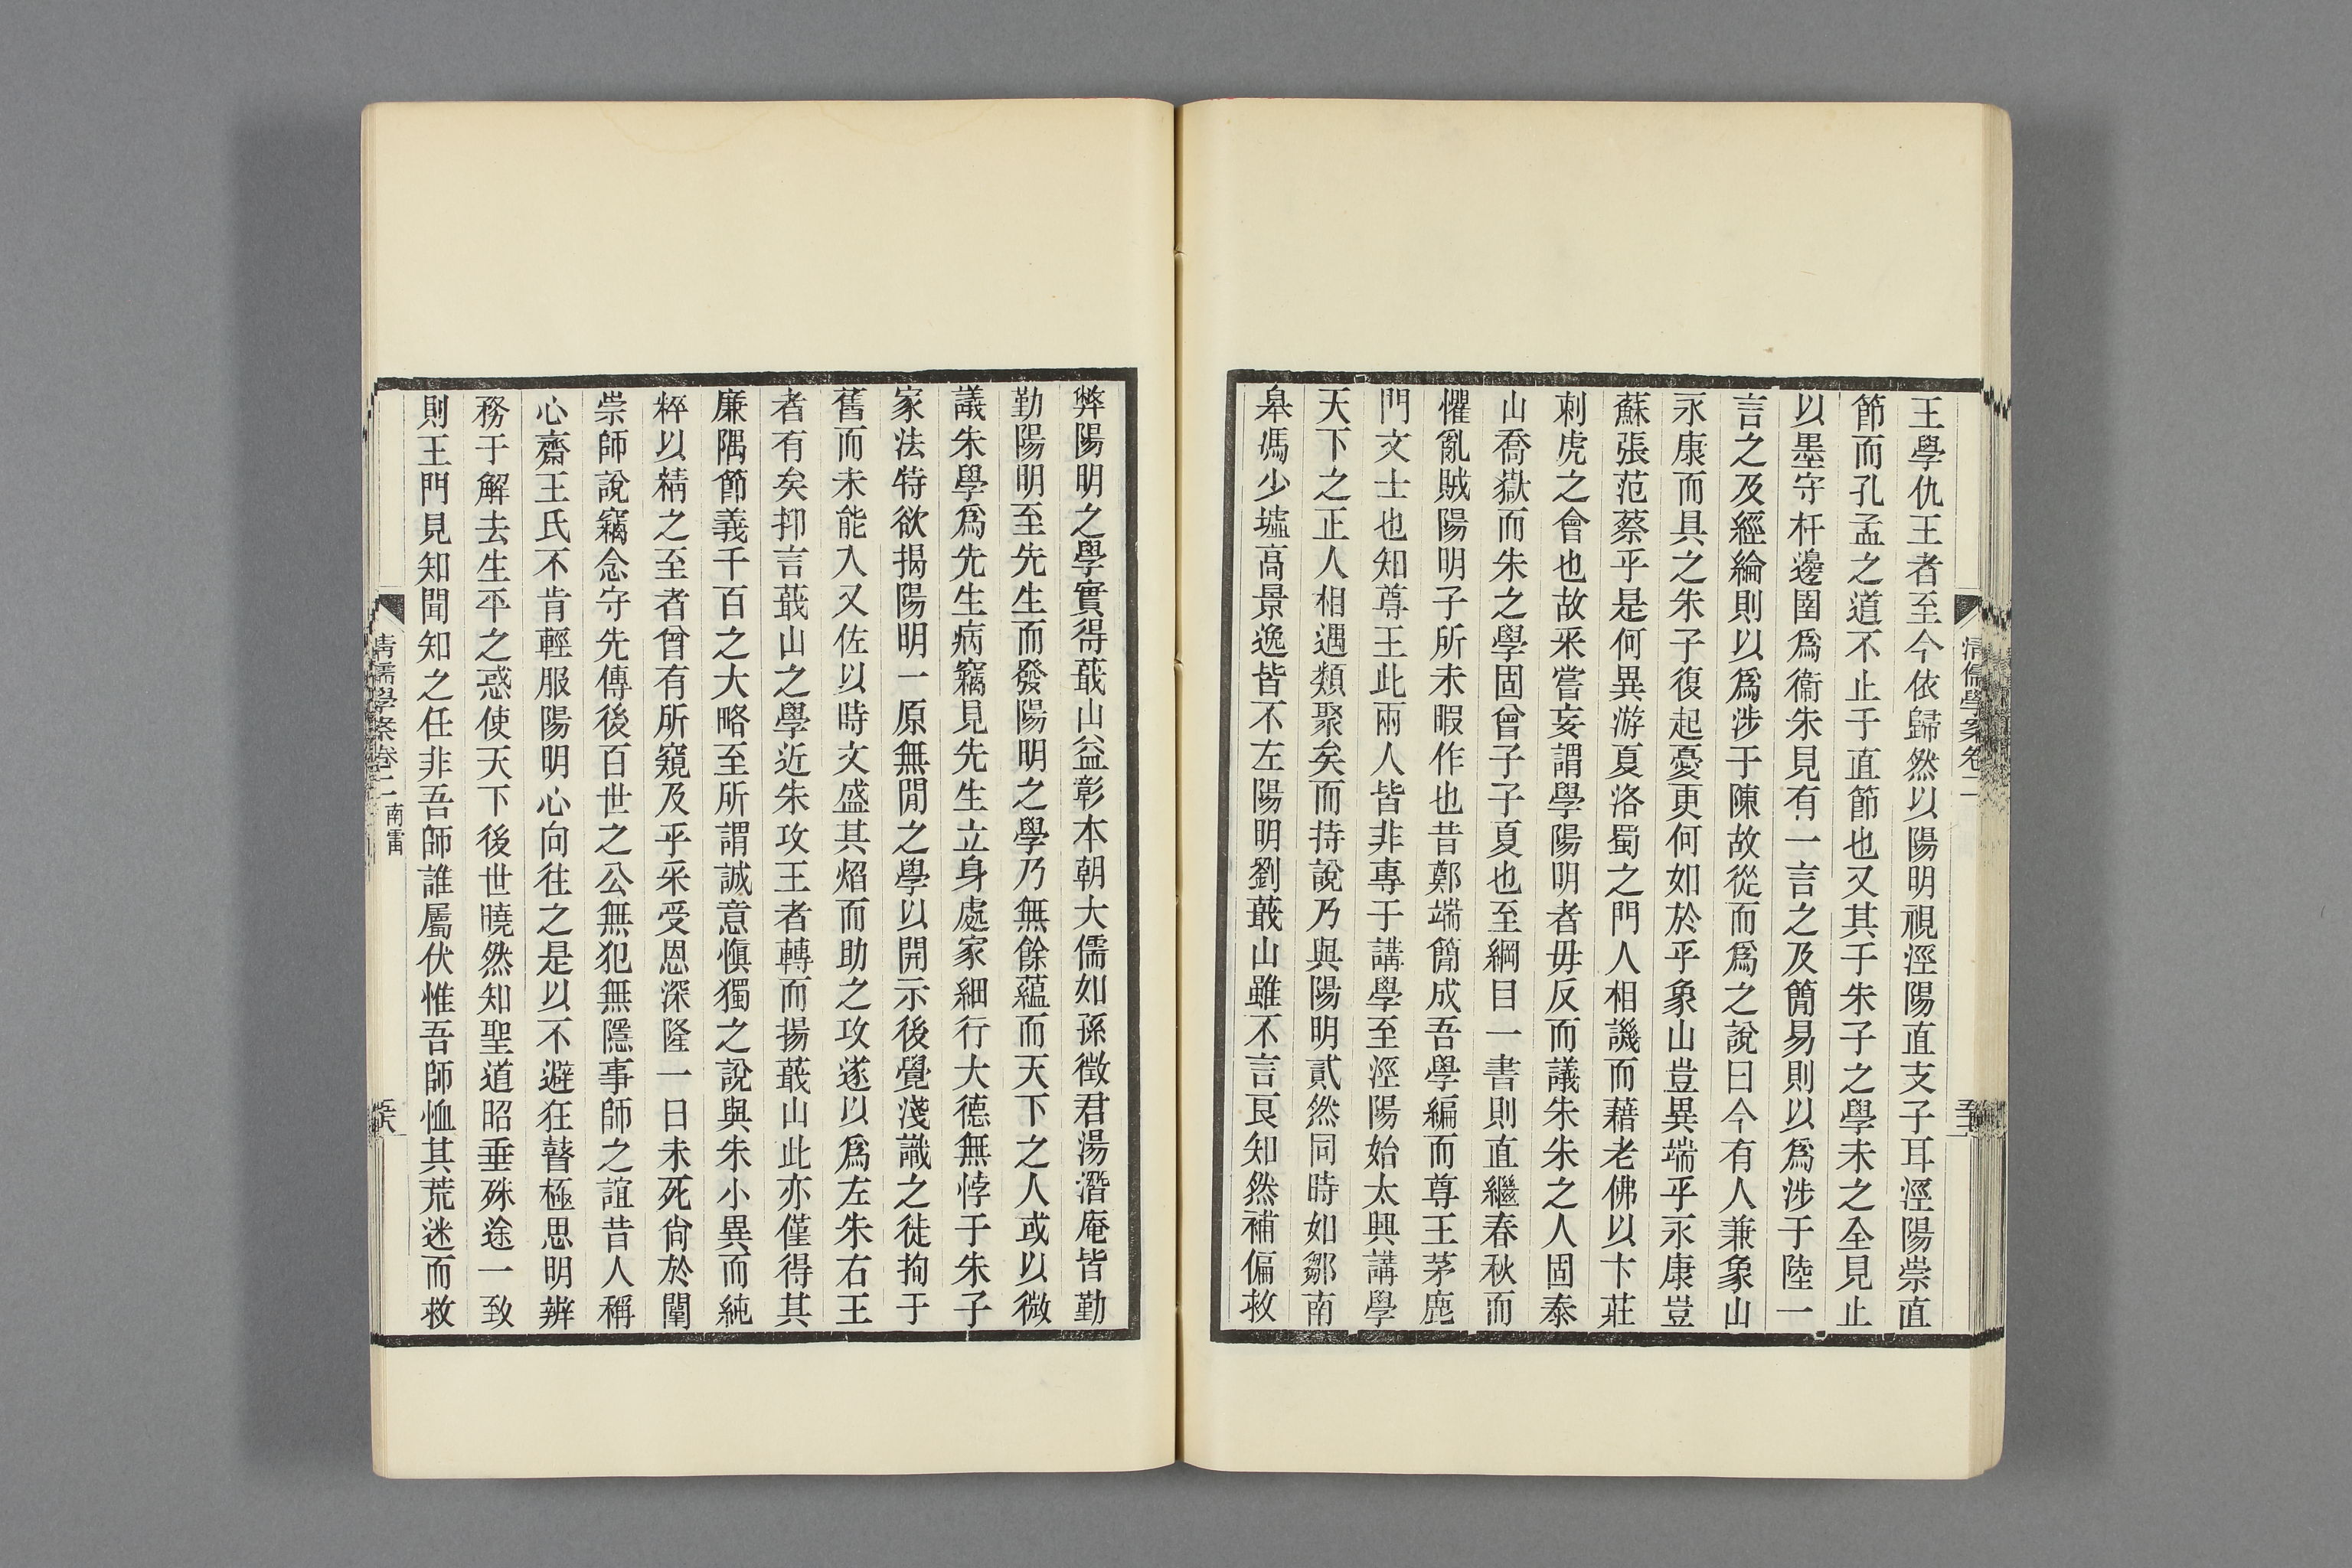 王學仇王者至今依歸然以陽明視涇陽直支子耳涇陽崇直
節而孔孟之道不止于直節也又其于朱子之學未之全見止
以墨守杆邊圉爲衞朱見有一言之及簡易則以爲涉于陸一
言之及經綸則以爲涉于陳故從而爲之說曰今有人兼象山
永康而具之朱子復起憂更何如於乎象山豈異端乎永康豈
蘇張范蔡乎是何異游夏洛蜀之門人相譏而藉老佛以卞莊
刺虎之會也故采嘗妄謂學陽明者毋反而議朱朱之人固泰
山喬嶽而朱之學固曾子子夏也至綱目一書則直繼春秋而
懼亂賊陽明子所未暇作也昔鄭端簡成吾學編而尊王茅鹿
門文士也知尊王此兩人皆非專于講學至涇陽始太興講學
天下之正人相遇類聚矣而持說乃與陽明貳然同時如鄒南
皋馮少墟高景逸皆不左陽明劉蕺山雖不言良知然補偏救
清儒學案卷二
弊陽明之學實得蕺山益彰本朝大儒如孫徵君湯潛庵皆勤
勤陽明至先生而發陽明之學乃無餘蘊而天下之人或以微
議朱學爲先生病竊見先生立身處家細行大德無悖于朱子
家法特欲揭陽明一原無閒之學以開示後覺淺識之徒拘于
舊而未能入又佐以時文盛其焰而助之攻遂以爲左朱右王
者有矣抑言蕺山之學近朱攻王者轉而揚蕺山此亦僅得其
廉隅節義千百之大略至所謂誠意愼獨之說與朱小異而純
粹以精之至者曾有所窺及乎采受恩深隆一日未死尙於闡
崇師說竊念守先傳後百世之公無犯無隱事師之誼昔人稱
心齋王氏不肯輕服陽明心向往之是以不避狂瞽極思明辨
務于解去生平之惑使天下後世曉然知聖道昭垂殊途一致
則王門見知聞知之任非吾師誰屬伏惟吾師恤其荒迷而救
清儒學案卷二 南雷